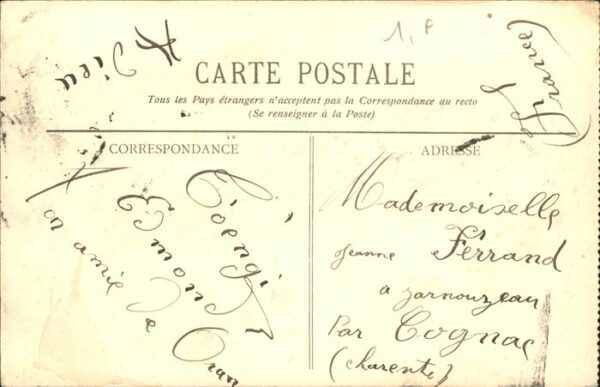 A Dieu
1, P
(France)
CARTE POSTALE
Tous les Pays étrangers n'acceptent pas la Correspondance au recto
(Se renseigner à la Poste)
CORRESPONDANCE
ADRESSE
Edmond
ton amie
Oran
Mademoiselle
Jeanne Ferrand
a Jarnouzeau
Par Cognac
(charente)